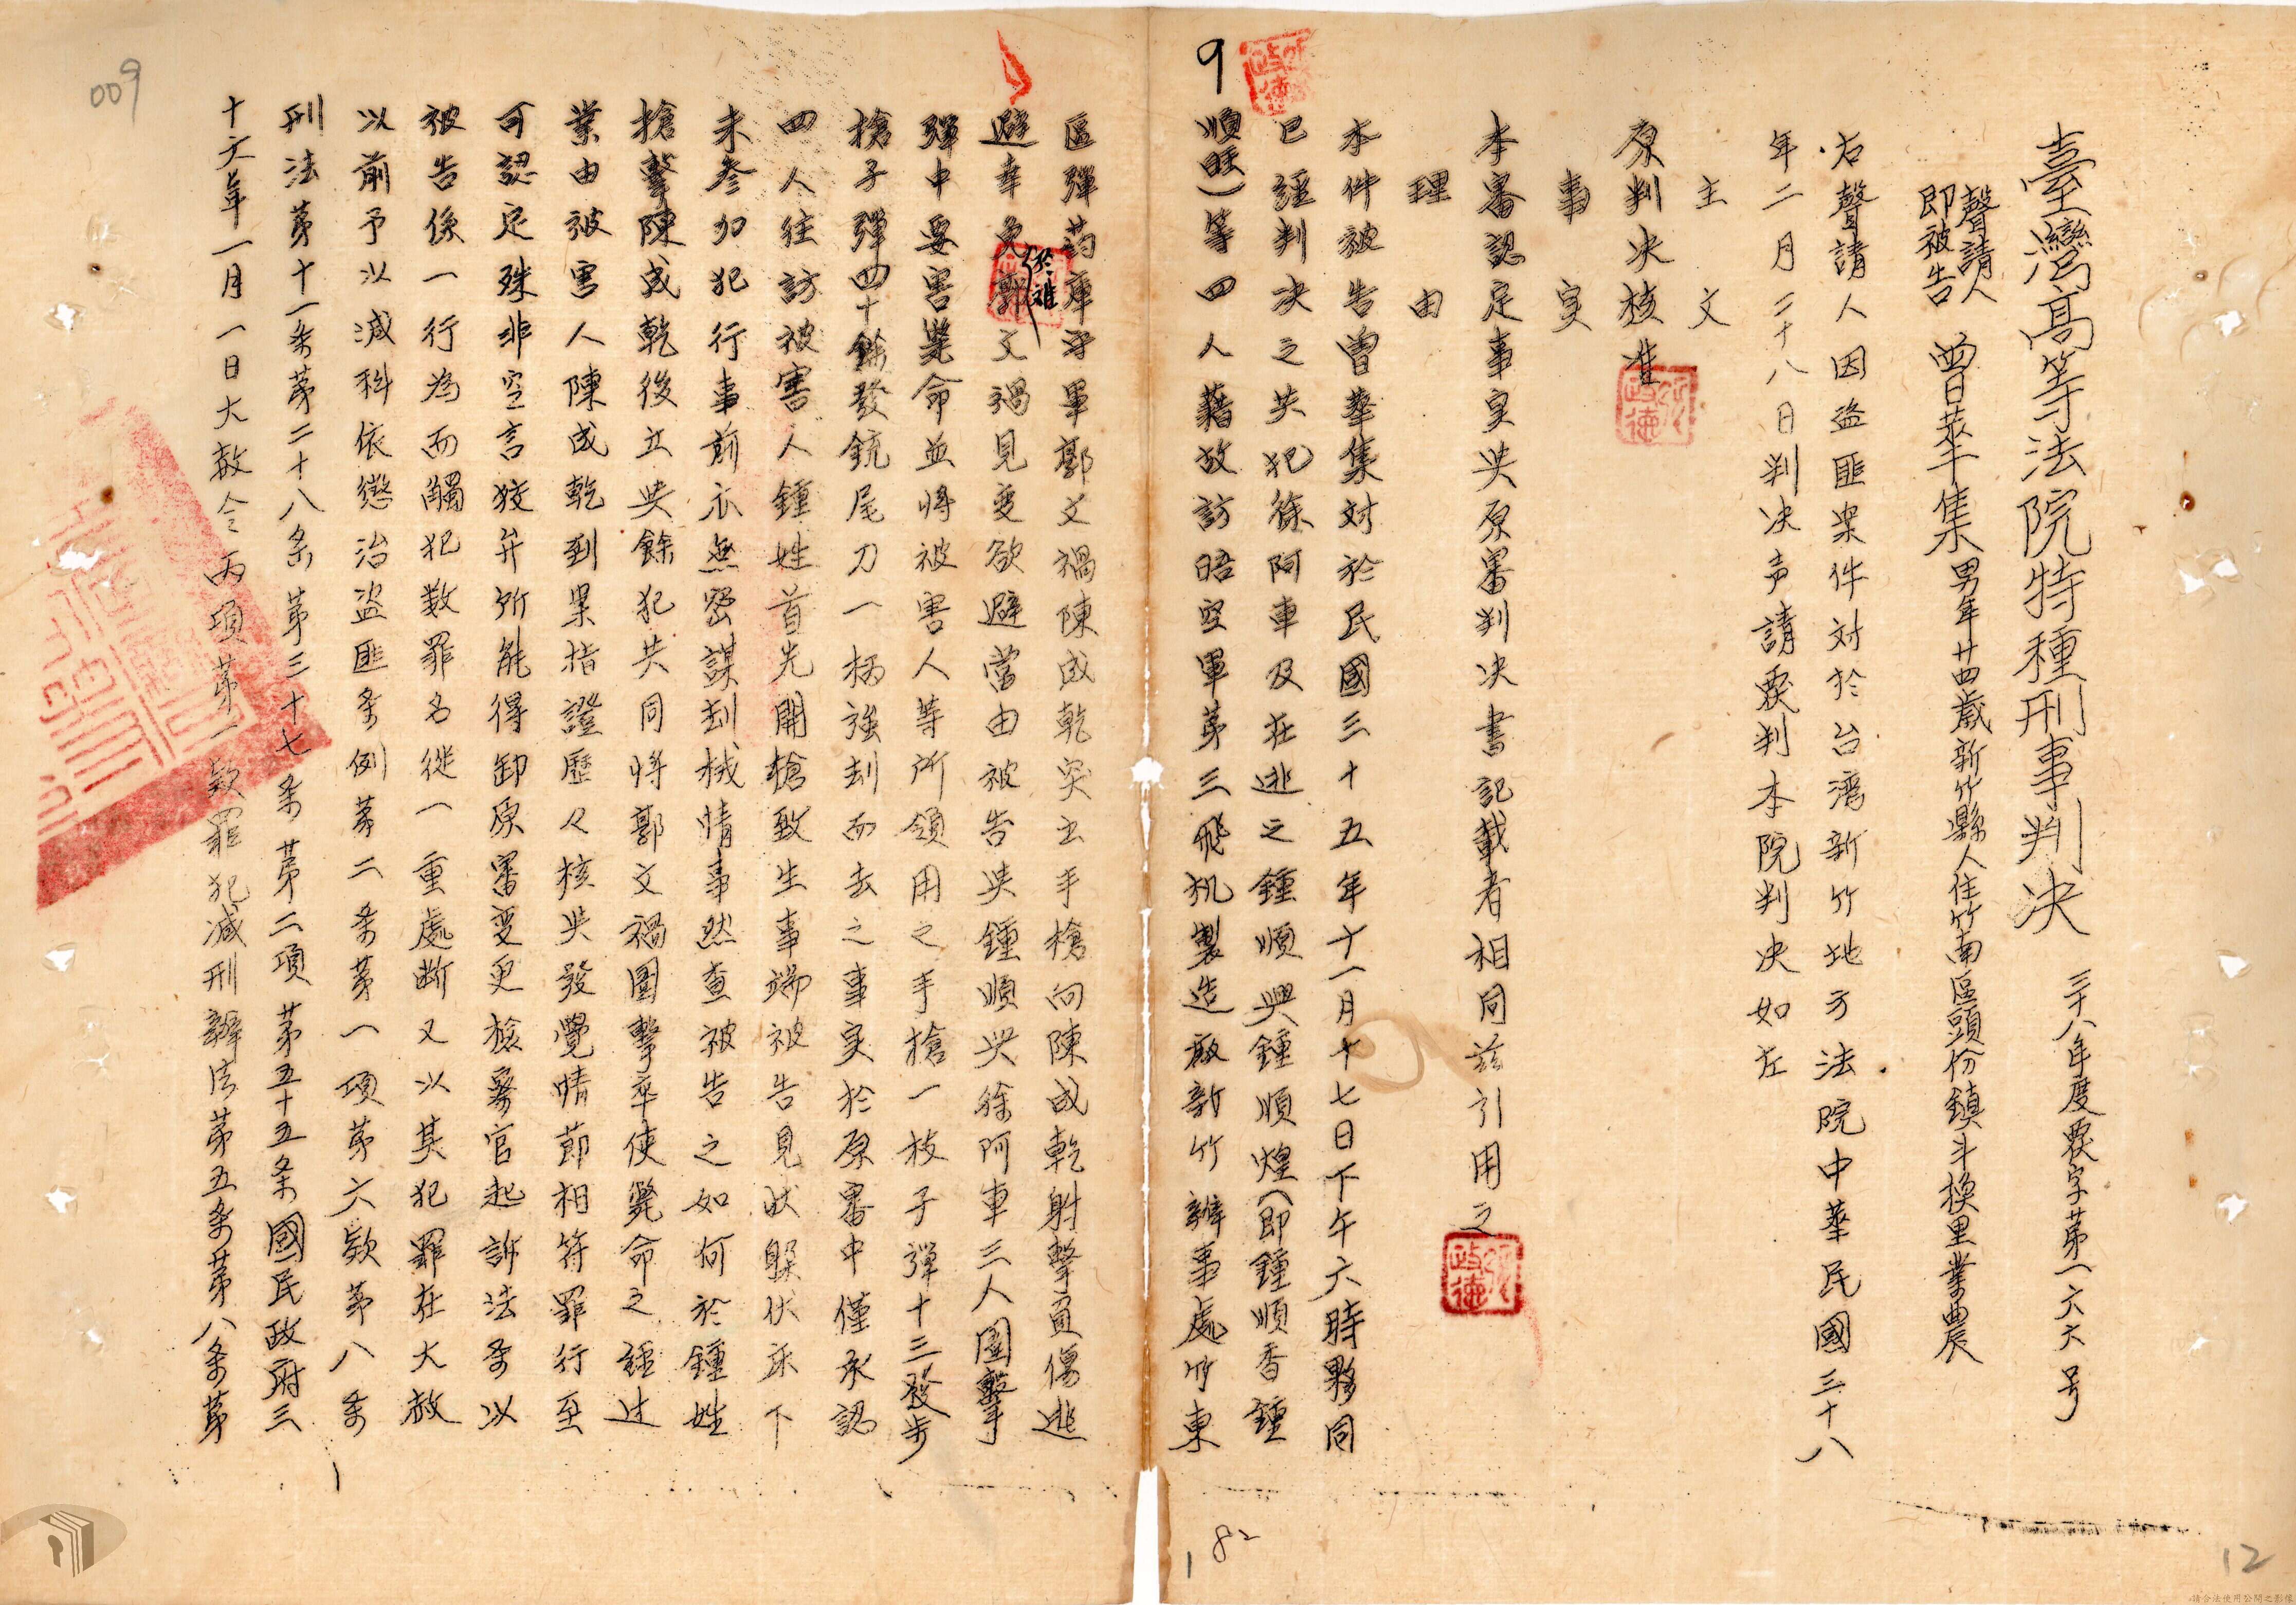 臺灣高等法院特種刑事判决 三十八年度覆字第一六六号
聲請人
即被告 曾華集 男年廿四歲新竹縣人住竹南區頭份鎮斗換里業農
右聲請人因盜匪案件対於台湾新竹地方法院中華民國三十八
年二月二十八日判决声請覆判本院判决如左
主文
原判决核准
事实
本審認定事实与原審判决書記載者相同茲引用之
理由
本件被告曾華集対於民國三十五年十一月十七日下午六時夥同
已經判决之共犯徐阿車及在逃之鍾順興鍾順煌(即鍾順香鍾
順旺)等四人藉故訪晤空軍第三飛机製造廠新竹辦事處竹東
區彈葯庫守軍郭文禍陳成乾突出手槍向陳成乾射擊負傷逃
避幸免於难郭文禍見变欲避當由被告与鍾順興徐阿車三人圍擊
彈中要害斃命並将被害人等所領用之手槍一枝子彈十三發步
槍子彈四十餘發銃尾刀一柄強刦而去之事实於原審中僅承認
四人往訪被害人鍾姓首先開槍致生事端被告見状躲伏床下
未参加犯行事前亦無密謀刦械情事然查被告之如何於鍾姓
槍擊陳成乾後立与餘犯共同将郭文禍圍擊卒使斃命之經过
業由被害人陳成乾到案指證歷々核与發覺情節相符罪行至
可認定殊非空言狡弁所能得卸原審变更檢察官起訴法条以
被告係一行為而觸犯数罪名從一重處断又以其犯罪在大赦
以前予以減科依懲治盜匪条例第二条第一項第六欵第八条
刑法第十一条第二十八条第三十七条第二項第五十五条國民政府三
十六年一月一日大赦令丙項第一欵罪犯減刑辦法第五条第八条第
9
009
182
12